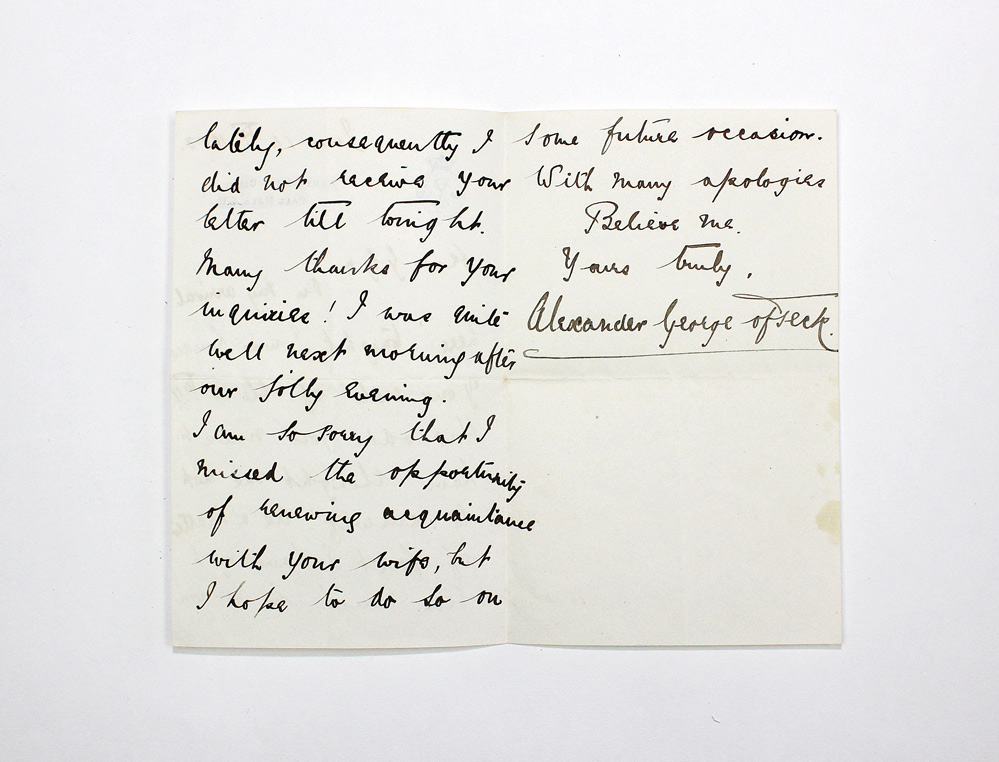 lately, consequently I
did not receive your
letter till tonight.
Many thanks for your
inquiries! I was quite
well next morning after
our jolly evening.
I am so sorry that I
missed the opportunity
of renewing acquaintance
with your wife, but
I hope to do so on
some future occasion.
With many apologies
Believe me.
Yours truly,
Alexander George of Teck.